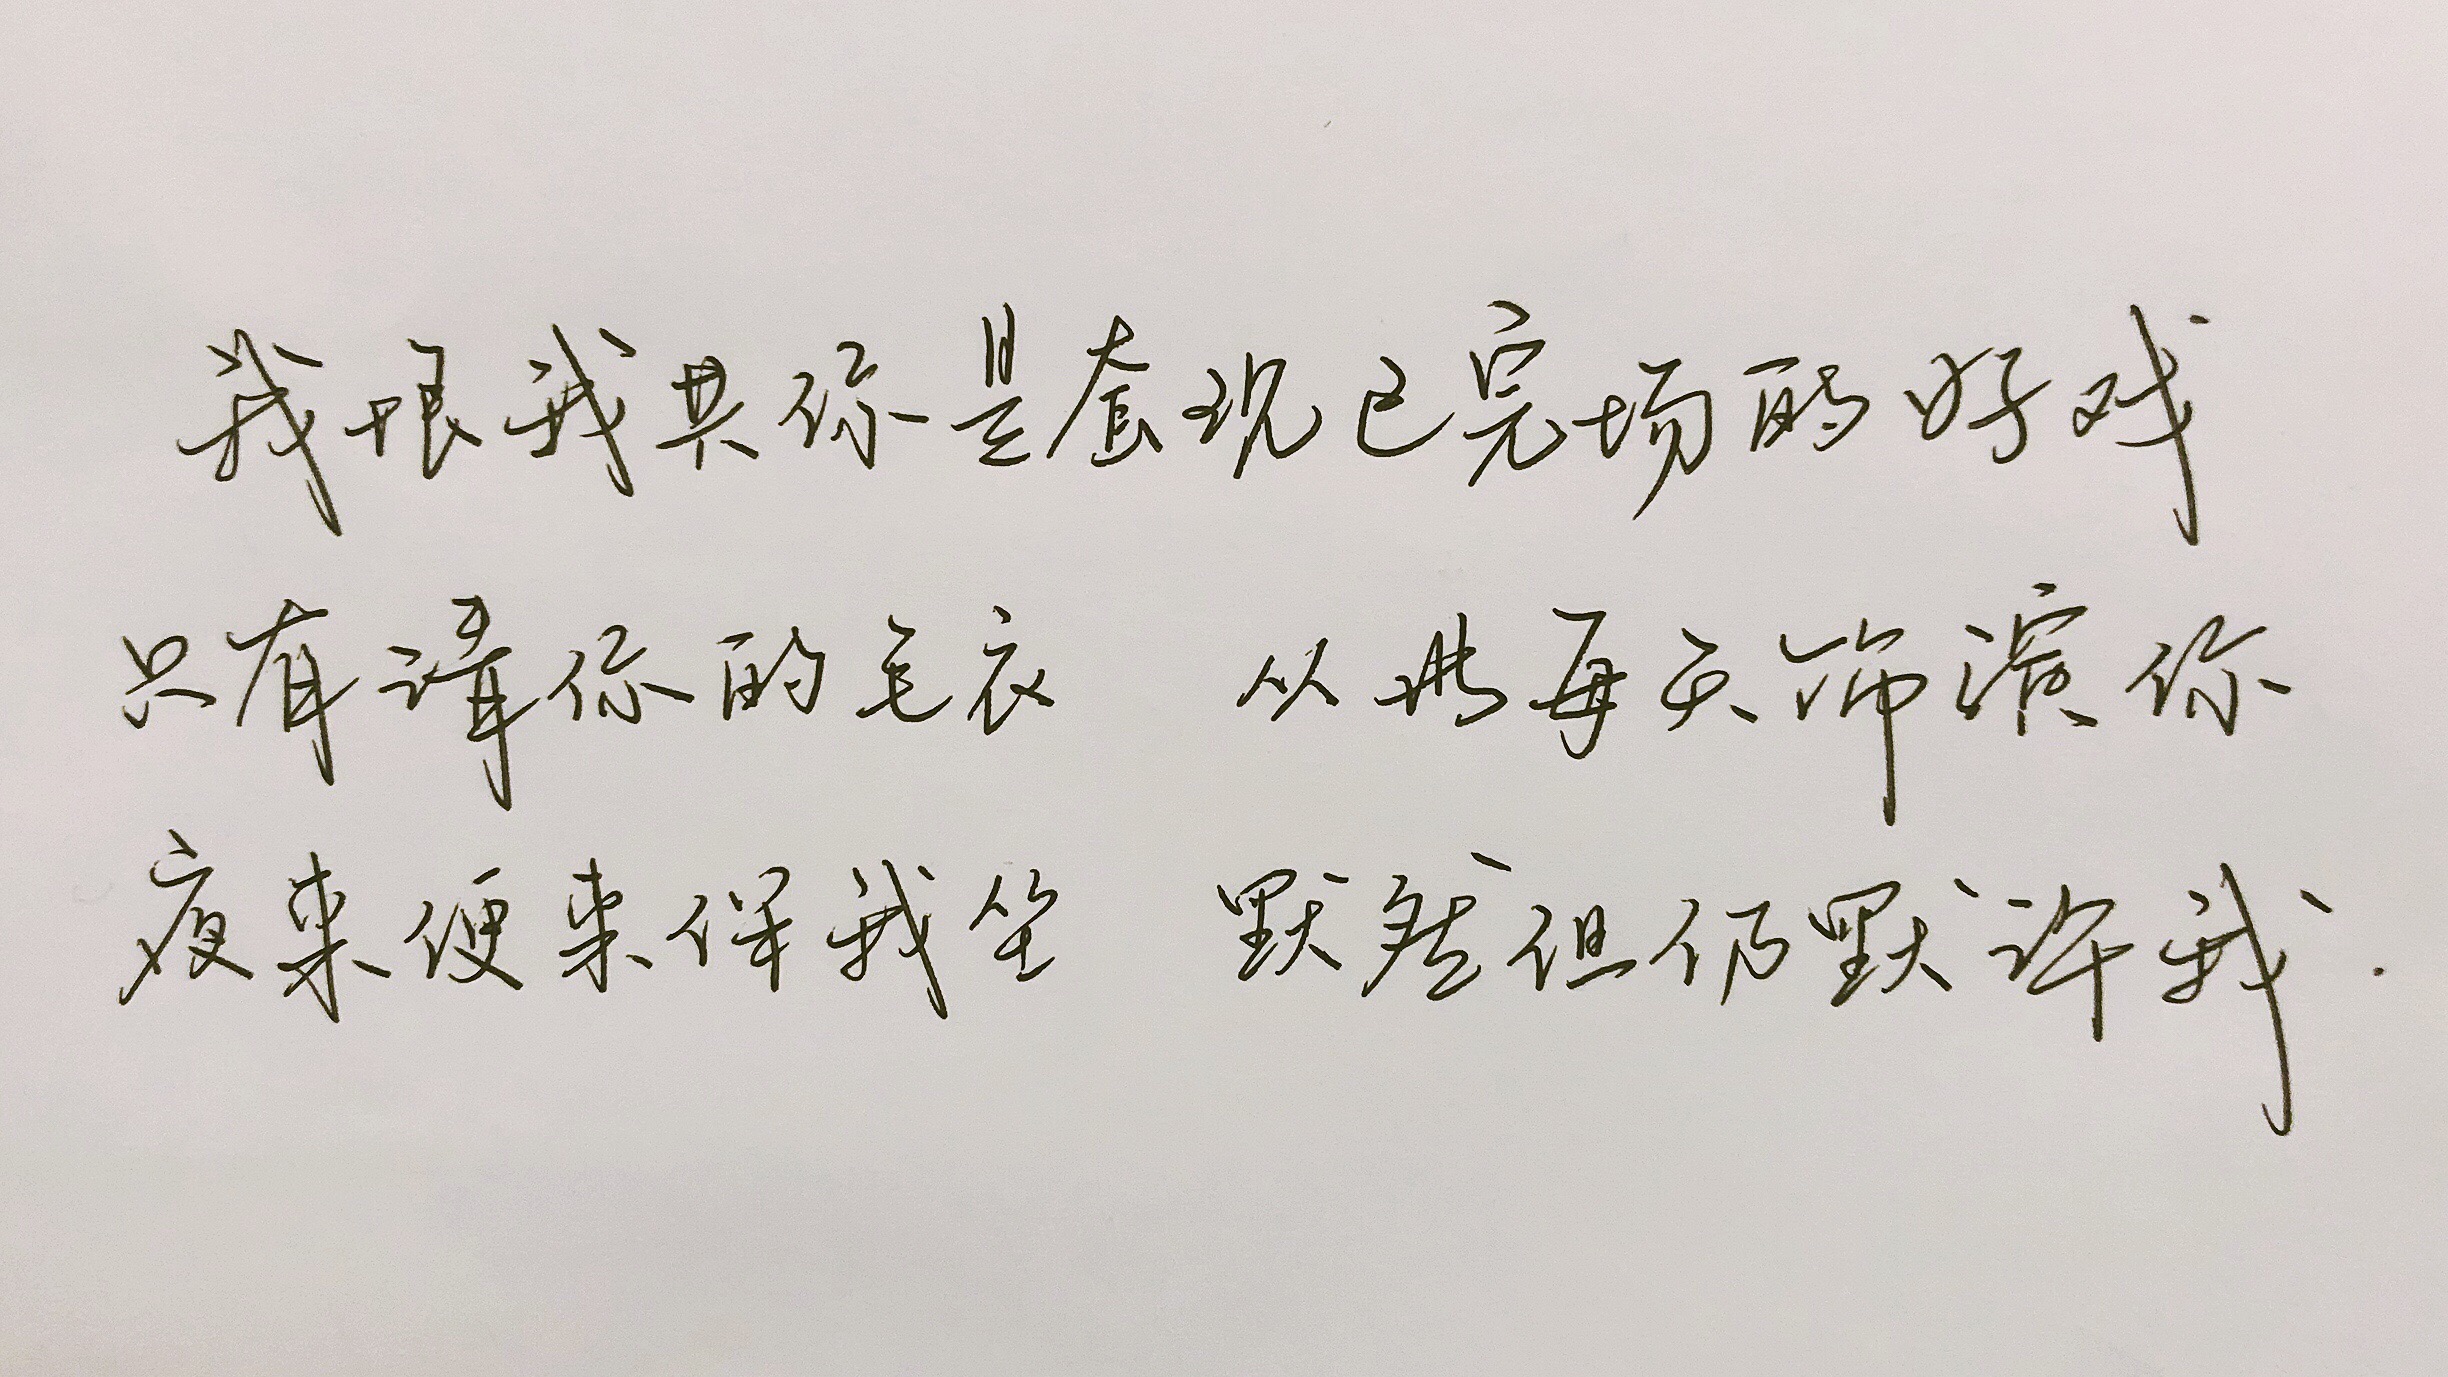 我恨我共你是套现已完场的好戏
只有请你的毛衣 从此每天饰演你
夜来便来伴我坐 默然但仍默许我.